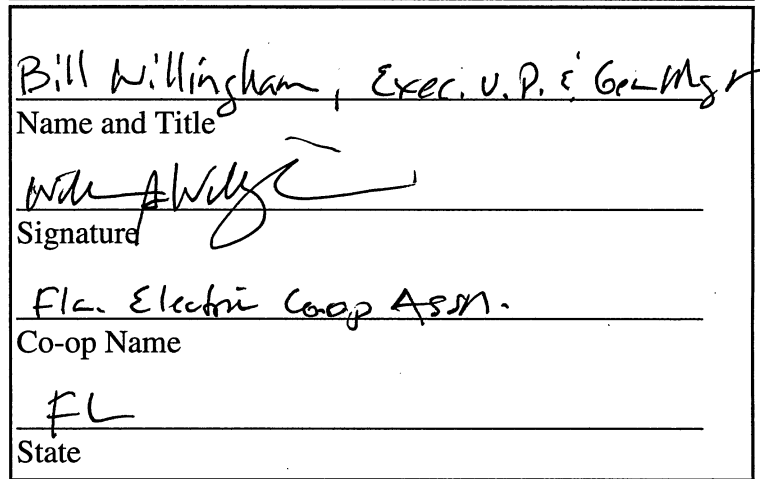 Bill Willingham, Exec. V.P. & Gen Mgr
Name and Title
Signature
Fla. Electric Co-op Assn.
Co-op Name
FL
State